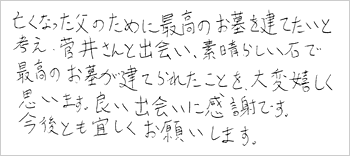 亡くなった父のために最高のお墓を建てたいと
考え、菅井さんと出会い、素晴らしい石で
最高のお墓が建てられたことを、大変嬉しく
思います。良い出会いに感謝です。
今後とも宜しくお願いします。